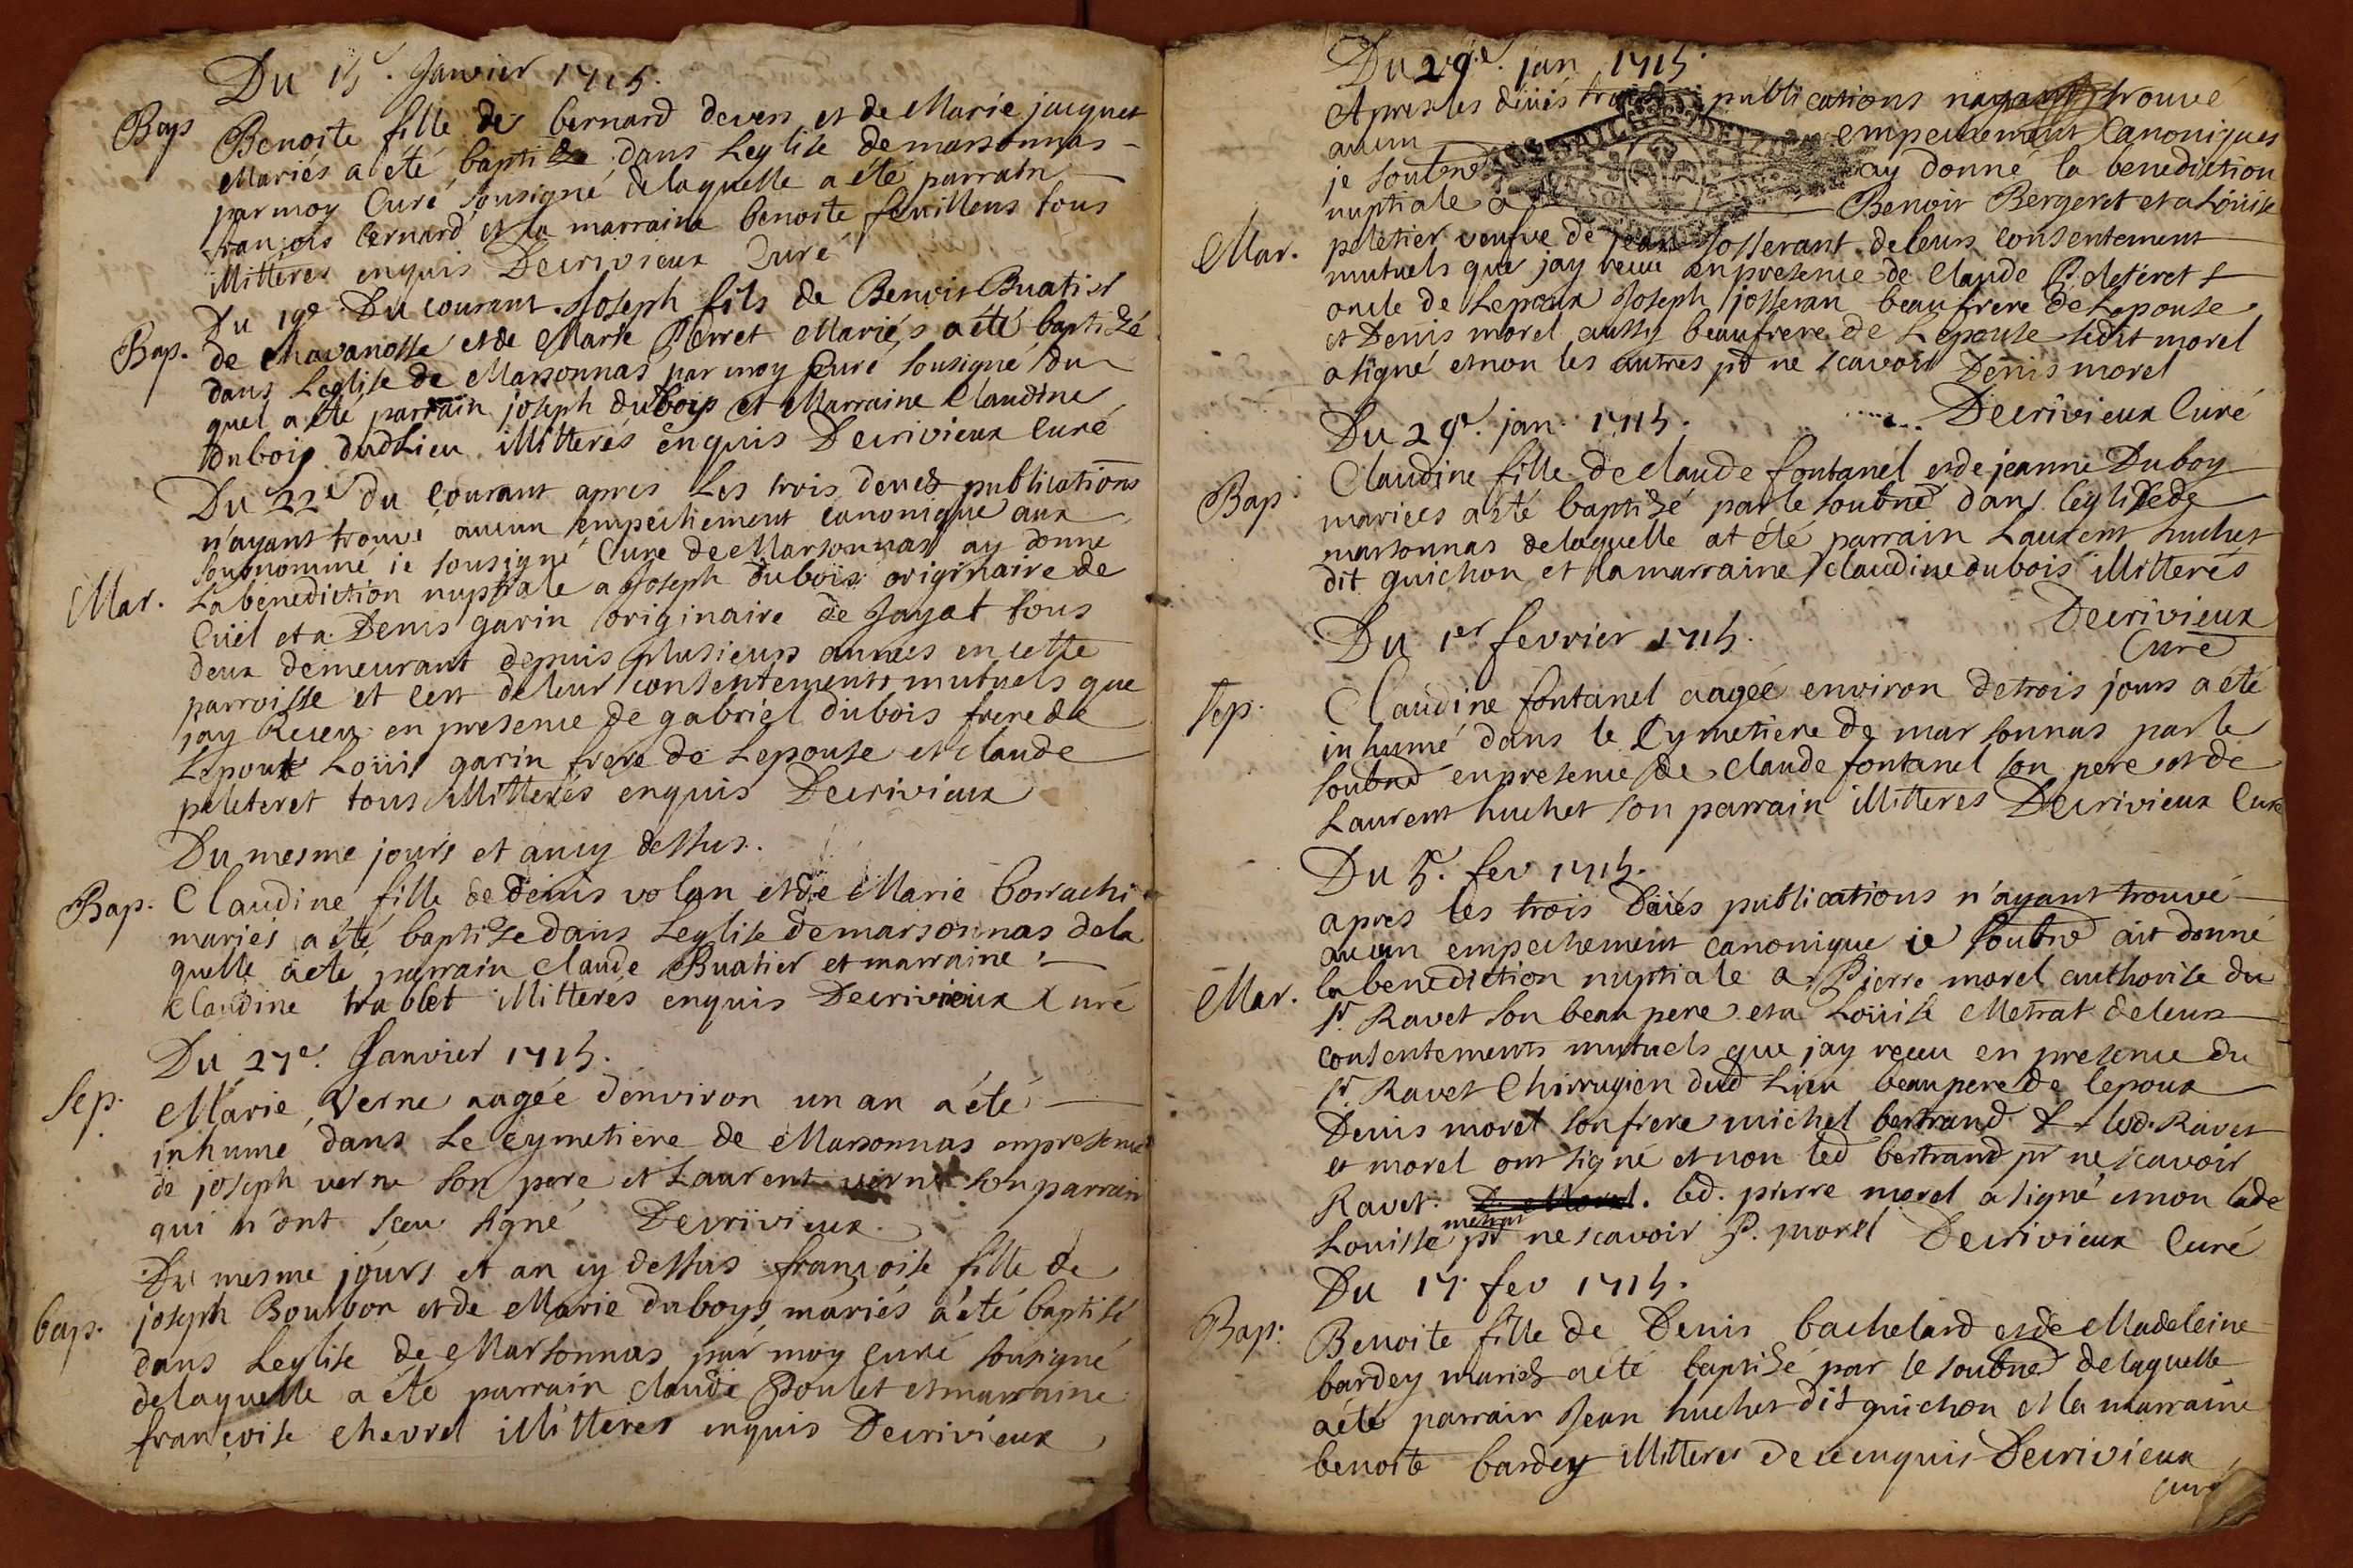 Du 15e. Janvier 1715.
Bap Benoite fille de bernard devers et de Marie jacquet
Mariés a été baptisée dans Leglise de marsonnas
par moy Curé sousigné delaquelle a été parrain
françois bernard et la marraine benoite feuillens tous
illitteres enquis Decrivieux Curé
Du 19e Du courant Joseph fils de Benoit Buatier
Bap. de Chavanosse et de Marie Perret Mariés a été baptizé
dans Leglise de Marsonnas par moy Curé sousigné du
quel a été parrain joseph dubois et Marraine Claudine
dubois dud Lieu illitterés enquis Decrivieux Curé
Du 22e du Courant apres Les trois deues publications
n'ayant trouvé aucun empechement canonique aux
sousnommé ie sousigné Cure de Marsonnas ay donne
Mar. La benediction nuptiale a Joseph dubois originaire de
Cuel et a Denis garin originaire de Jayat tous
deux demeurant depuis plusieurs annees en cette
parroisse et c'est de leur consentements mutuels que
jay Receu en presence de gabriel dubois frere de
Lepoux Loüis garin frere de Lepouse et claude
peleteret tous illitterés enquis Decrivieux
Du mesme jours et an cy dessus.
Bap. Claudine fille de denis volan et de Marie borrachi
mariés a été baptise dans Leglise de marsonnas dela
quelle a eté parrain claude Buatier et marraine
Claudine trablet illitterés enquis Decrivieux Curé
Du 27e. Janvier 1715.
Sep. Marie Verne aagée d'environ un an a été
inhumé dans Le Cymetiere de Marsonnas en presence
de joseph verne son pere et Laurent verne son parrain
qui n'ont sceu signé Decrivieux
Du mesme jours et an cy dessus françoise fille de
bap. joseph Bourbon et de Marie duboys mariés a été baptisé
dans Leglise de Marsonnas par moy curé sousigné
delaquelle a été parrain claude Poulet et marraine
françoise Chevrel illitteres enquis Decrivieux
Du 29e. jan 1715.
Apres les deües trois publications trouvé
aucun empechement Canoniques
je soubne ay donné la benediction
nuptiale a Benoir Bergeret et a Loüise
Mar. peletier veufve de jean Josserant de leurs consentement
mutuels que jay receu en presence de Claude Peleteret
oncle de Lepoux Joseph josseran beaufrere de Lepouse
et Denis morel aussy beaufrere de Lepouse ledit morel
a signé et non les autres pr ne scavoir Denis morel
Decrivieux Curé
Du 29e. jan. 1715.
Bap Claudine fille de claude fontanel et de jeanne Duboy
mariees a été baptizé par le soubné dans léglize de
marsonnas delaquelle at été parrain Laurent huchet
dit guichon et la marraine claudine dubois illitterés
Decrivieux
Curé
Du 1er fevrier 1715.
Sep. Claudine fontanel aagée environ de trois jours a été
inhumé dans le Cymetiere de marsonnas par le
soubné en presence de claude fontanel son pere et de
Laurent huchet son parrain illitteres Decrivieux Cure
Du 5e. fev 1715.
apres les trois deües publications n'ayant trouvé
aucun empechement canonique ie soubné ait donné
Mar. la benediction nuptiale a Pierre morel authorise du
sr. Ravet son beau pere et a Loüise Metrat de leurs
consentements mutuels que jay receu en presence du
sr. Ravet Chirrugien dud Lieu beaupere de lepoux
Denis morel son frere michel bertrand & led. Ravet
et morel ont signé et non led bertrand pr ne scavoir
Ravet. D Morel. led. pierre morel a signé et non lade
Louisse metrat pr ne scavoir P. morel Decrivieux Curé
Du 17 fev 1715.
Bap. Benoite fille de Denis bachelard et de Madeleine
bardey mariés a été baptisé par le soubné delaquelle
a été parrain Jean huchet dit guichon et la marraine
benoite bardey illitteres de ce enquis Decrivieux
Curé